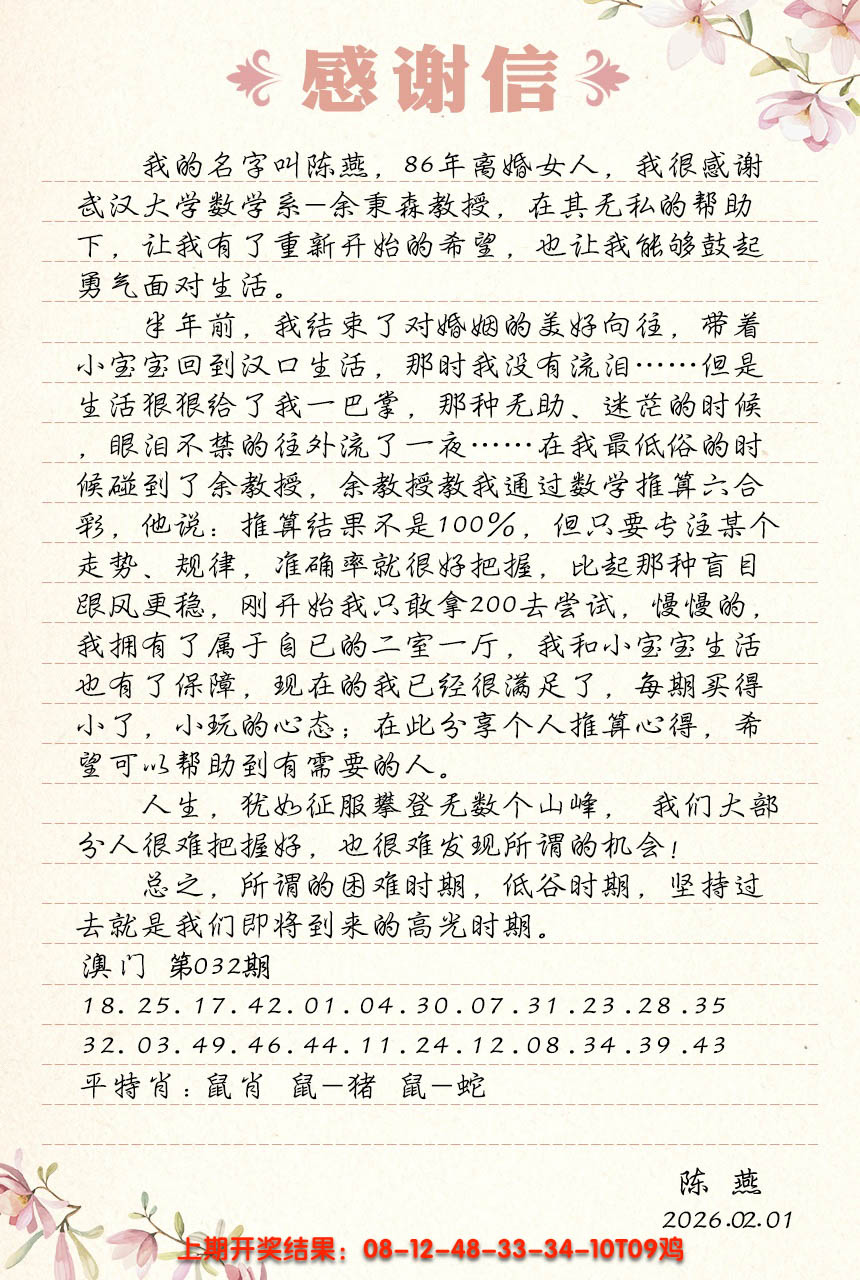 感谢信
我的名字叫陈燕，86年离婚女人，我很感谢
武汉大学数学系—余秉森教授，在其无私的帮助
下，让我有了重新开始的希望，也让我能够鼓起
勇气面对生活。
半年前，我结束了对婚姻的美好向往，带着
小宝宝回到汉口生活，那时我没有流泪……但是
生活狠狠给了我一巴掌，那种无助、迷茫的时候
，眼泪不禁的往外流了一夜……在我最低俗的时
候碰到了余教授，余教授教我通过数学推算六合
彩，他说：推算结果不是100%，但只要专注某个
走势、规律，准确率就很好把握，比起那种盲目
跟风更稳，刚开始我只敢拿200去尝试，慢慢的，
我拥有了属于自己的二室一厅，我和小宝宝生活
也有了保障，现在的我已经很满足了，每期买得
小了，小玩的心态；在此分享个人推算心得，希
望可以帮助到有需要的人。
人生，犹如征服攀登无数个山峰， 我们大部
分人很难把握好，也很难发现所谓的机会！
总之，所谓的困难时期，低谷时期，坚持过
去就是我们即将到来的高光时期。
澳门 第032期
18.25.17.42.01.04.30.07.31.23.28.35
32.03.49.46.44.11.24.12.08.34.39.43
平特肖：鼠肖 鼠—猪 鼠—蛇
陈 燕
2026.02.01
上期开奖结果：08-12-48-33-34-10T09鸡